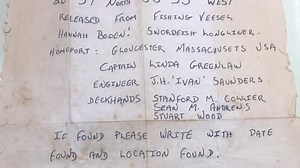 57 NORTH 38 55 WEST
RELEASED FROM FISHING VEESEL
HANNAH BODEN: SWORDFISH LONGLINER.
HOMEPORT: GLOUCESTER MASSACUSETS USA.
CAPTAIN LINDA GREENLAW
ENGINEER J.H. 'IVAN' SAUNDERS
DECKHANDS STANFORD M. COLLIER
SEAN M. ANDREWS
STUART WOOD
IF FOUND PLEASE WRITE WITH DATE
FOUND AND LOCATION FOUND.